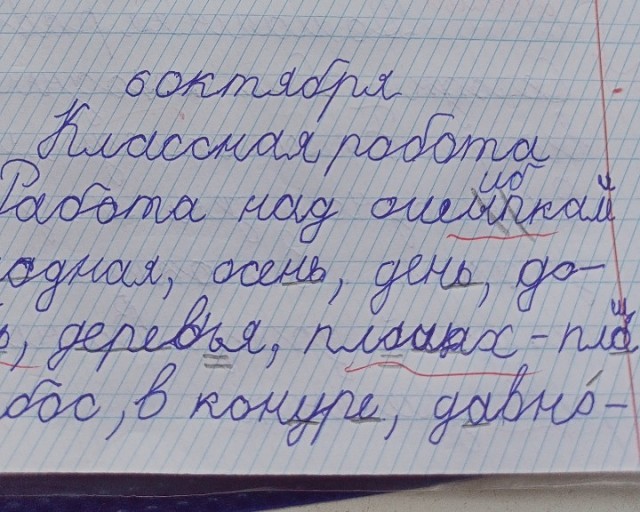 6 октября
Классная работа
Работа над ошыпкам
одная, осень, день, до-
деревья, плащах - пла
бос, в конуре, давно-